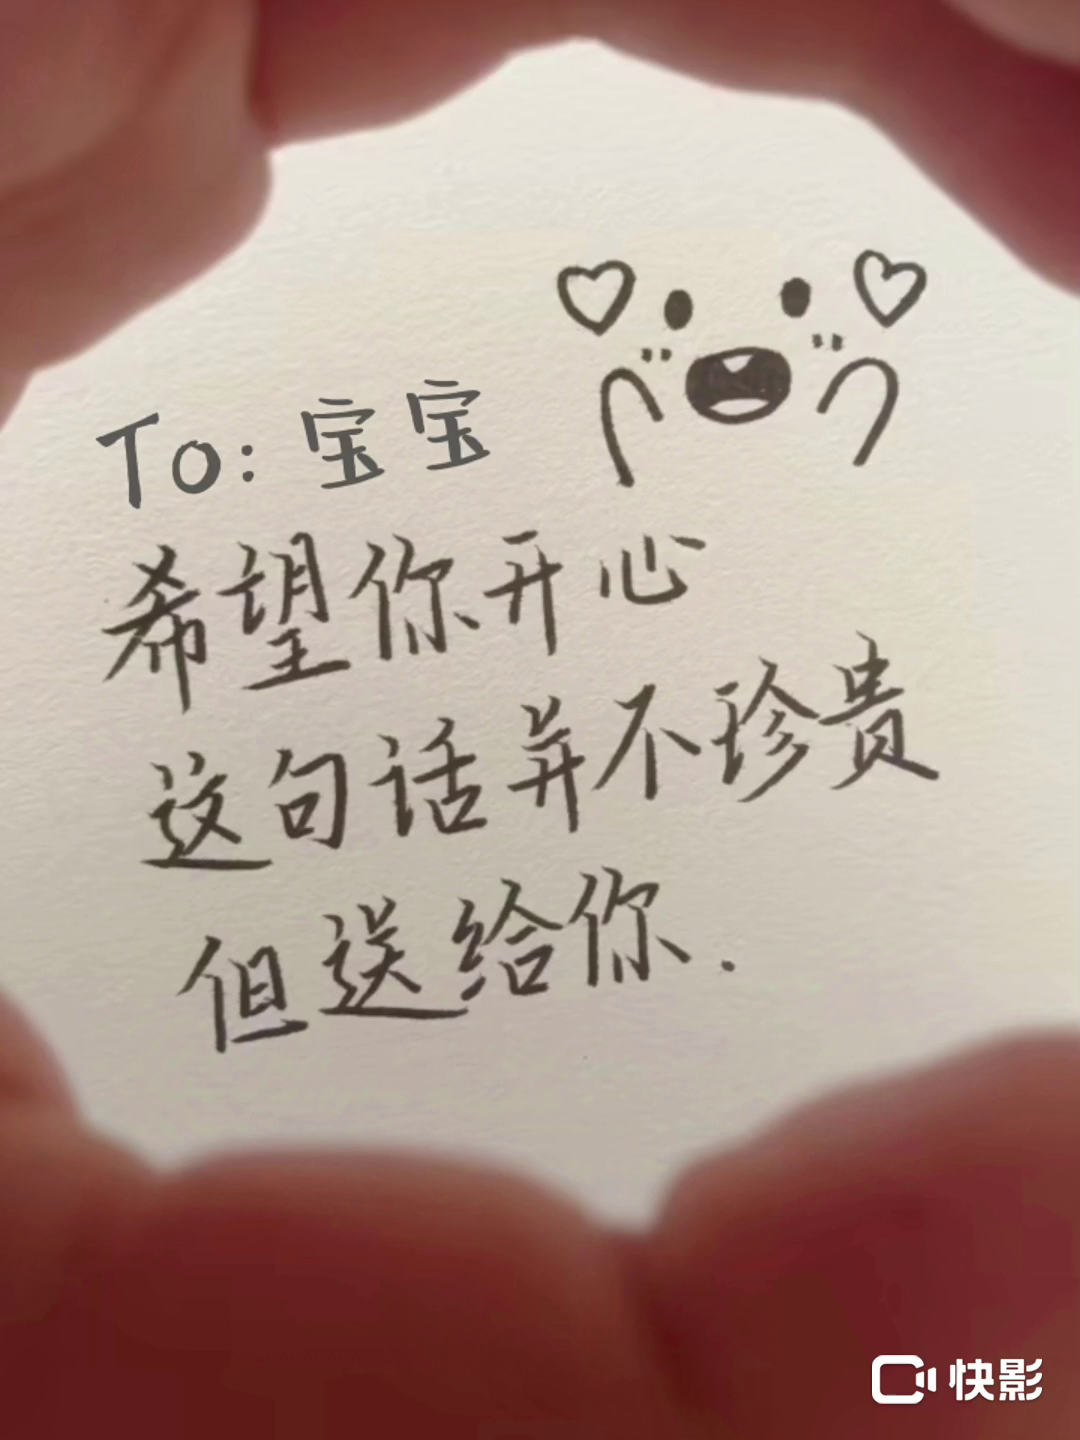 To：宝宝
希望你开心
这句话并不珍贵
但送给你.
快影